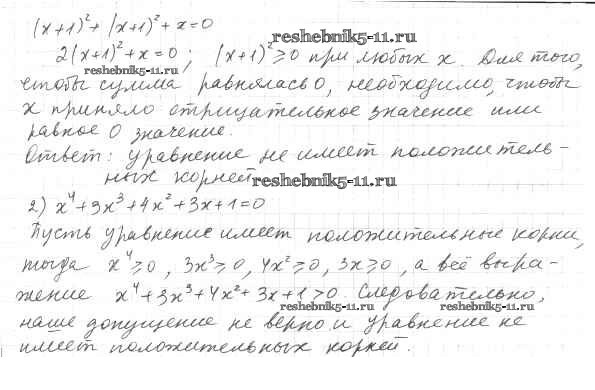 (x+1)²+(x+1)²+x=0
reshebnik5-11.ru
2(x+1)²+x=0; (x+1)²≥0 при любых x. Для того,
reshebnik5-11.ru
чтобы сумма равнялась 0, необходимо, чтобы
x приняло отрицательное значение или
равное 0 значение.
Ответ: уравнение не имеет положитель-
ных корней reshebnik5-11.ru
2) x⁴+3x³+4x²+3x+1=0
Пусть уравнение имеет положительные корни,
тогда x⁴≥0, 3x³≥0, 4x²≥0, 3x≥0, а всё выра-
жение x⁴+3x³+4x²+3x+1>0. Следовательно,
reshebnik5-11.ru reshebnik5-11.ru
наше допущение не верно и уравнение не
имеет положительных корней.